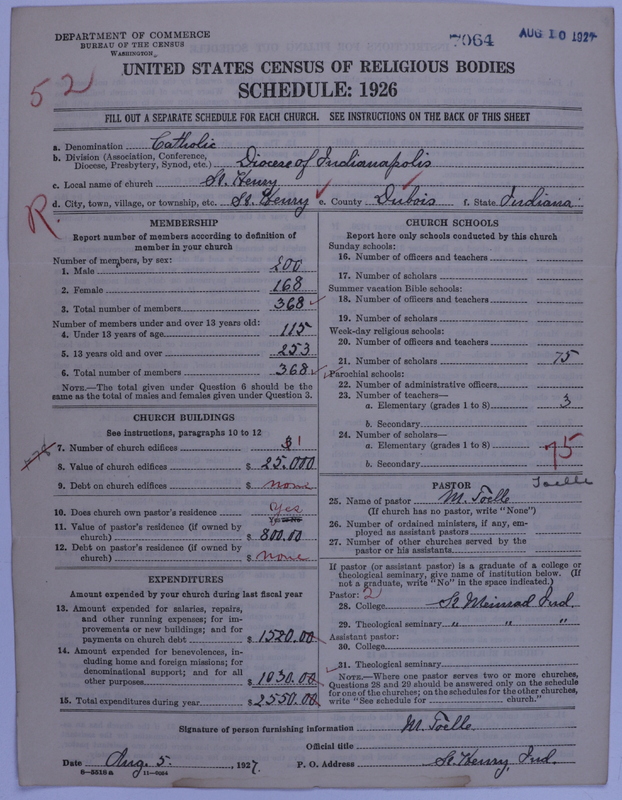 DEPARTMENT OF COMMERCE
BUREAU OF THE CENSUS
WASHINGTON
7064
AUG 10 1927
52
UNITED STATES CENSUS OF RELIGIOUS BODIES
SCHEDULE: 1926
FILL OUT A SEPARATE SCHEDULE FOR EACH CHURCH. SEE INSTRUCTIONS ON THE BACK OF THIS SHEET
a. Denomination Catholic
b. Division (Association, Conference, Diocese, Presbytery, Synod, etc.) Diocese of Indianapolis
c. Local name of church St. Henry
d. City, town, village, or township, etc. St. Henry e. County Dubois f. State Indiana
R.
MEMBERSHIP
Report number of members according to definition of
member in your church
Number of members, by sex:
1. Male 200
2. Female 168
3. Total number of members 368
Number of members under and over 13 years old:
4. Under 13 years of age 115
5. 13 years old and over 253
6. Total number of members 368
NOTE.—The total given under Question 6 should be the
same as the total of males and females given under Question 3.
CHURCH BUILDINGS
See instructions, paragraphs 10 to 12
7. Number of church edifices 1
8. Value of church edifices $ 25.000
9. Debt on church edifices $ none
10. Does church own pastor's residence Yes
Yes or No
11. Value of pastor's residence (if owned by
church) $ 800.00
12. Debt on pastor's residence (if owned by
church) $ none
EXPENDITURES
Amount expended by your church during last fiscal year
13. Amount expended for salaries, repairs,
and other running expenses; for im-
provements or new buildings; and for
payments on church debt $ 1520.00
14. Amount expended for benevolences, in-
cluding home and foreign missions; for
denominational support; and for all
other purposes $ 1030.00
15. Total expenditures during year $ 2550.00
CHURCH SCHOOLS
Report here only schools conducted by this church
Sunday schools:
16. Number of officers and teachers
17. Number of scholars
Summer vacation Bible schools:
18. Number of officers and teachers
19. Number of scholars
Week-day religious schools:
20. Number of officers and teachers
21. Number of scholars 75
Parochial schools:
22. Number of administrative officers
23. Number of teachers—
a. Elementary (grades 1 to 8) 3
b. Secondary
24. Number of scholars—
a. Elementary (grades 1 to 8) 75
b. Secondary
PASTOR
Toelle
25. Name of pastor M. Toelle
(If church has no pastor, write "None")
26. Number of ordained ministers, if any, em-
ployed as assistant pastors
27. Number of other churches served by the
pastor or his assistants
If pastor (or assistant pastor) is a graduate of a college or
theological seminary, give name of institution below. (If
not a graduate, write "No" in the space indicated.)
Pastor: 2
28. College St. Meinrad Ind.
29. Theological seminary " " "
Assistant pastor:
30. College
31. Theological seminary
NOTE.—Where one pastor serves two or more churches,
Questions 28 and 29 should be answered only on the schedule
for one of the churches; on the schedules for the other churches,
write "See schedule for church."
Signature of person furnishing information M. Toelle
Official title
Date Aug. 5. , 1927. P. O. Address St. Henry, Ind.
8-5516a 11-9024